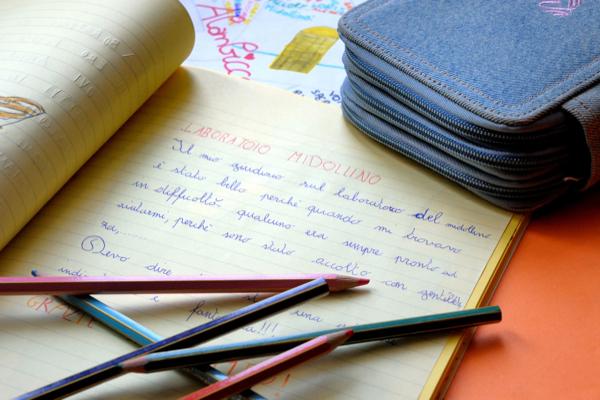 LABORATOIO MIDOLLINO
Il mio giudizio sul laboratorio del midollino
è stato bello perché quando mi trovavo
in difficoltà qualcuno era sempre pronto ad
aiutarmi, perché sono stato accolto con gentilez
za,......
Devo dire
e si una
!!!
GRAZIE